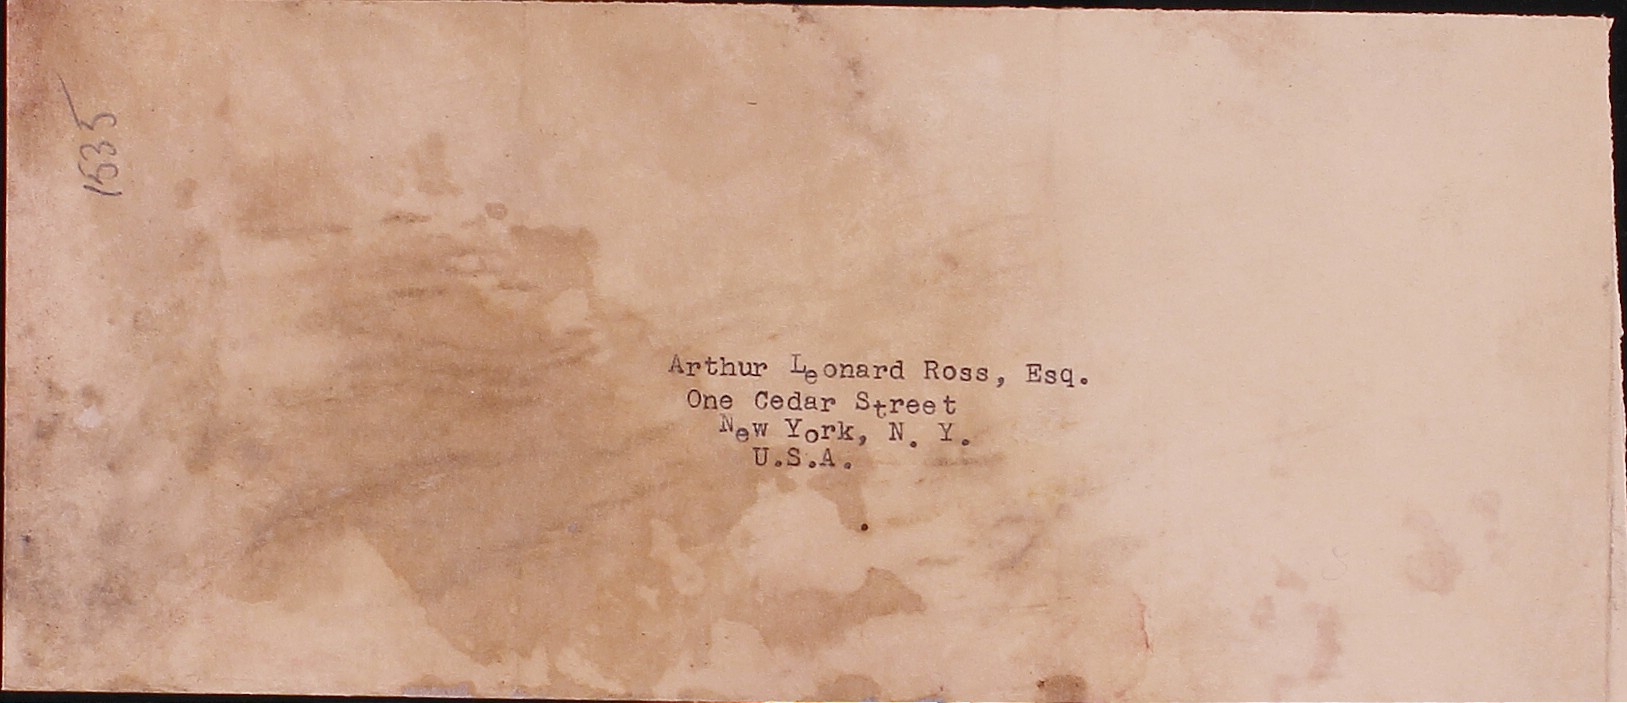 1535
Arthur Leonard Ross, Esq.
One Cedar Street
New York, N. Y.
U.S.A.